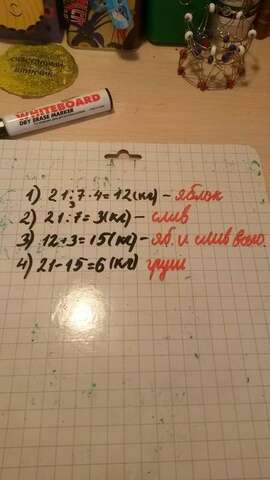 счастливый
WHITEBOARD
DRY ERASE MARKER
1) 21:7·4=12(кг) - яблок
3
2) 21:7=3(кг) - слив
3) 12+3=15(кг) - яб. и слив всего.
4) 21-15=6(кг) груш